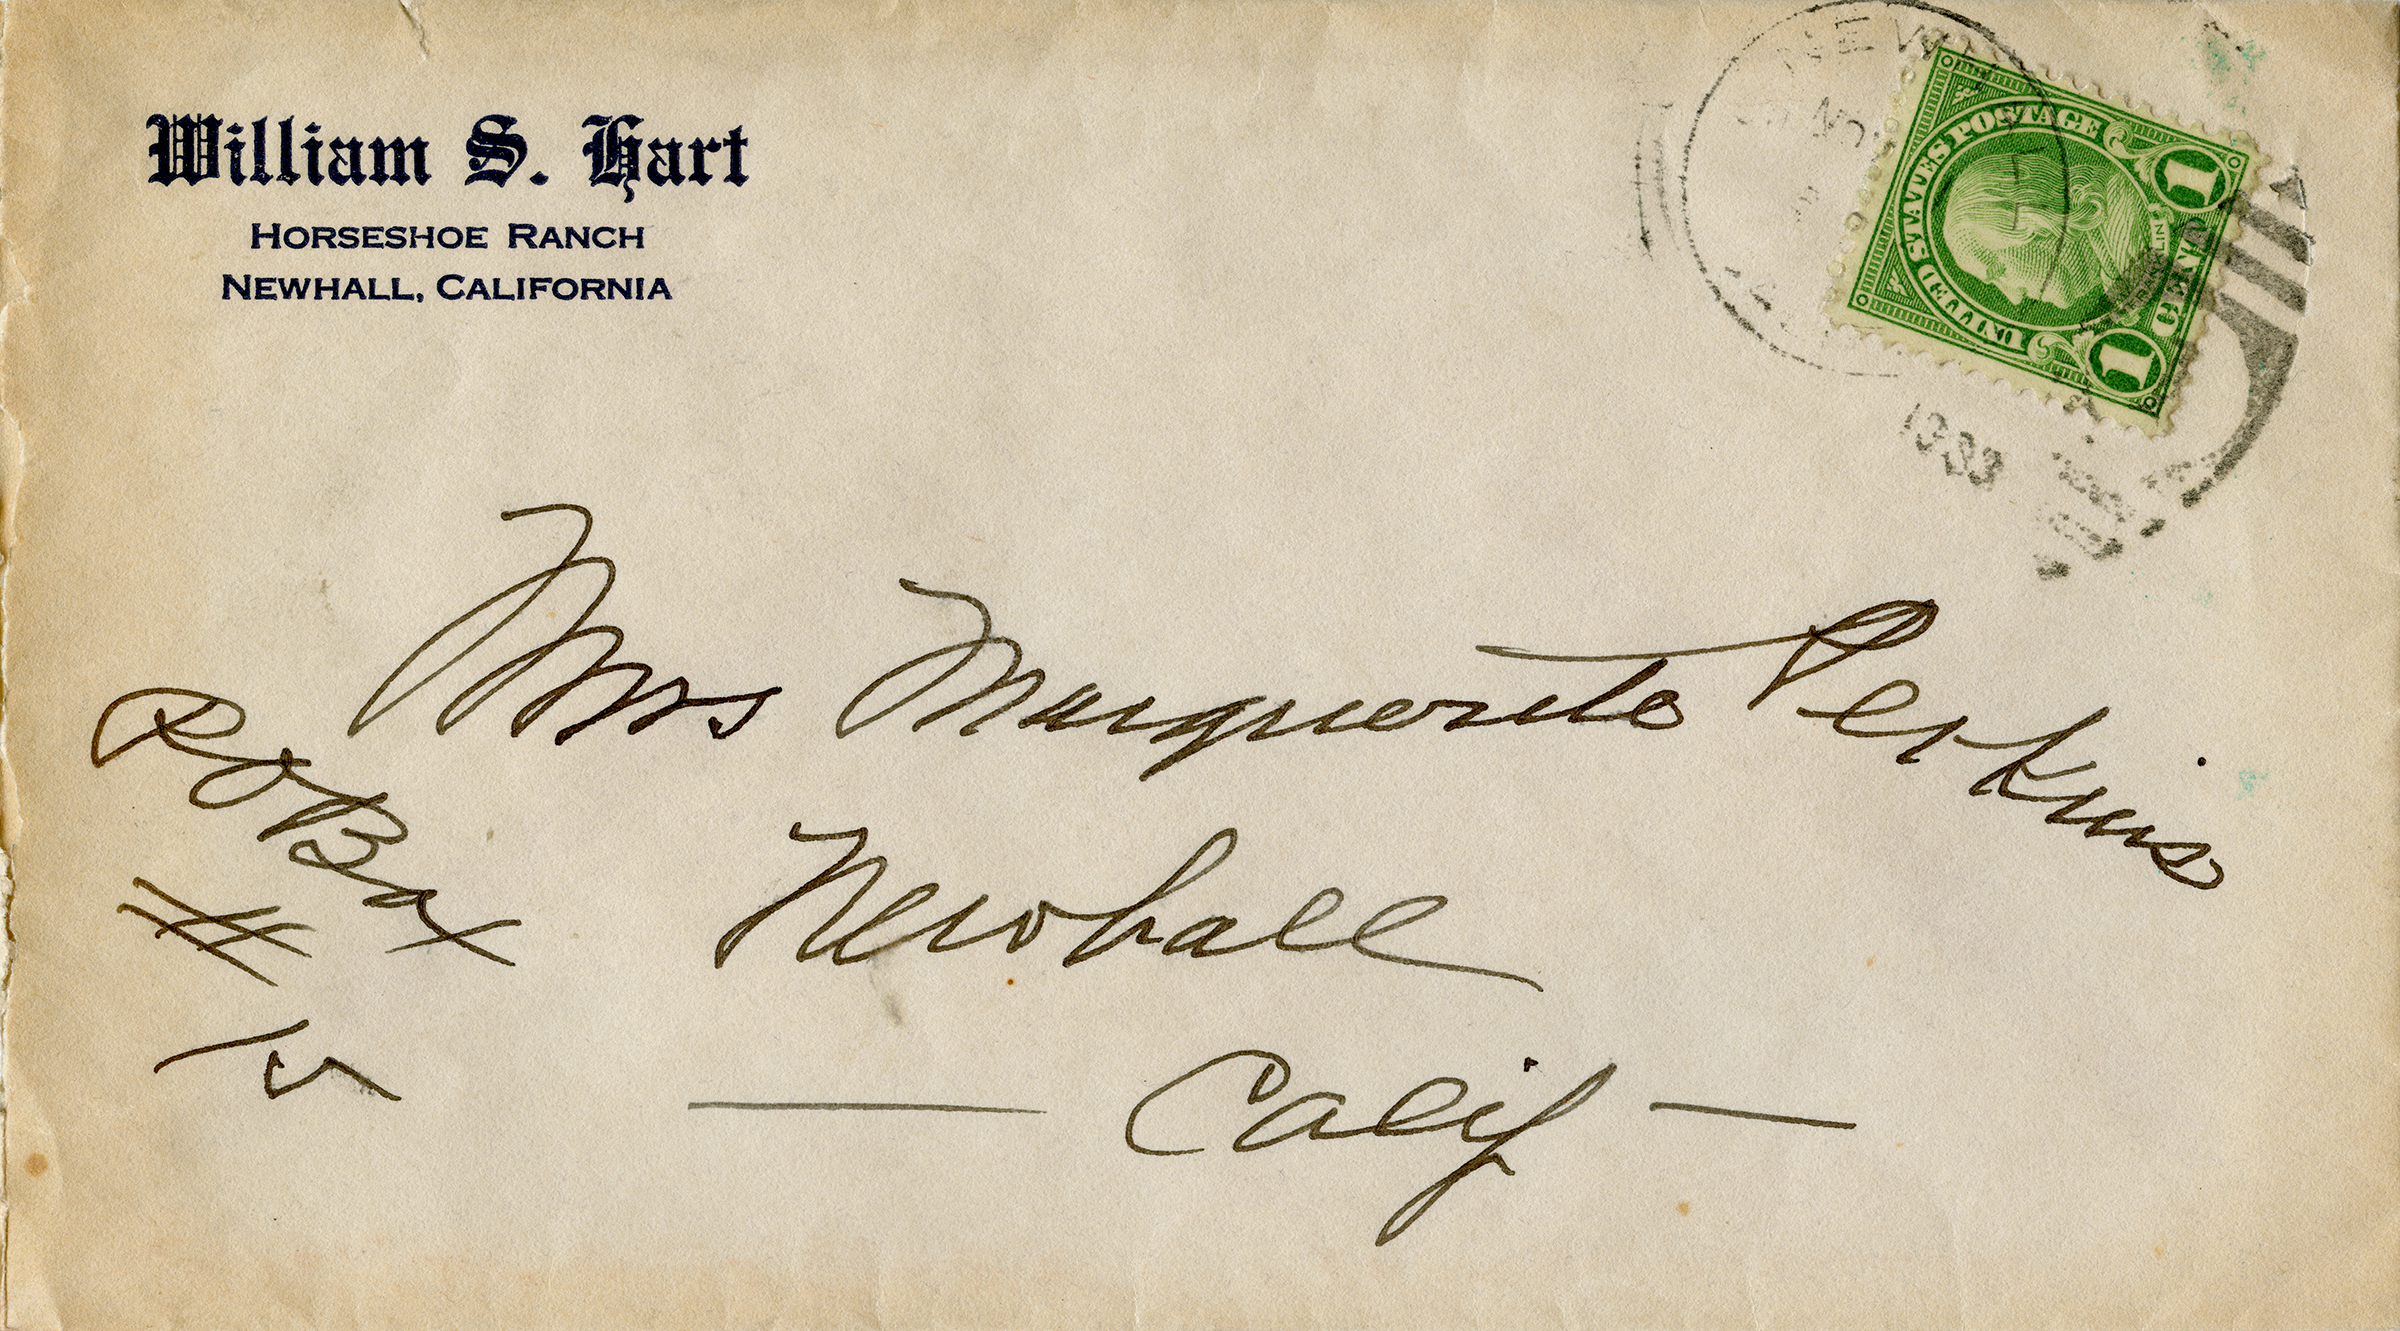 William S. Hart
HORSESHOE RANCH
NEWHALL, CALIFORNIA
NEW
NOV
1933
UNITED STATES POSTAGE
FRANKLIN
1 CENT 1
Mrs Marguerite Perkins
P O Box
#
Newhall
— Calif —